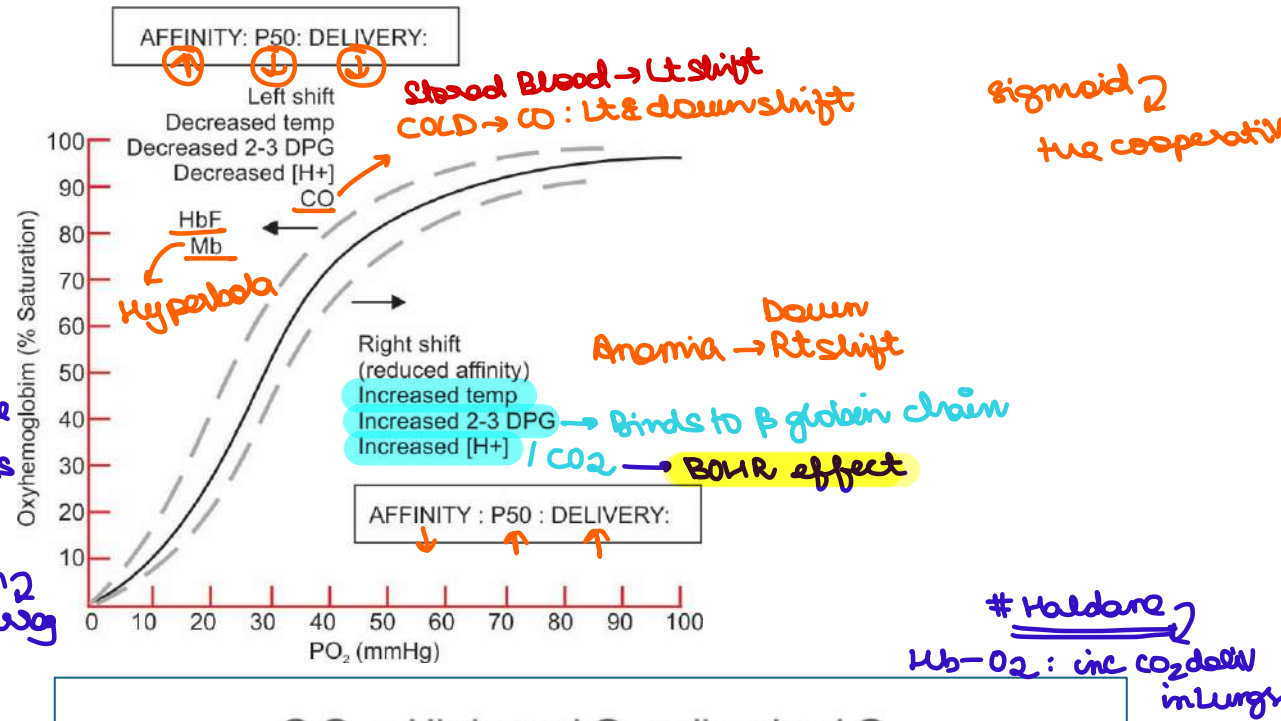 AFFINITY: P50: DELIVERY:
↑ ↓ ↓
Left shift
Decreased temp
Decreased 2-3 DPG
Decreased [H+]
CO
HbF
Mb
Hyperbola
Stored Blood → Lt shift
COLD → CO : Lt & down shift
sigmoid
Down
Anemia → Rt shift
Right shift
(reduced affinity)
Increased temp
Increased 2-3 DPG → Binds to β globin chain
Increased [H+] / CO2 → BOHR effect
AFFINITY : P50 : DELIVERY:
↓ ↑ ↑
Oxyhemoglobim (% Saturation)
100
90
80
70
60
50
40
30
20
10
0 10 20 30 40 50 60 70 80 90 100
PO₂ (mmHg)
# Haldane
Hb-O2 : inc CO2 deliv
in lungs